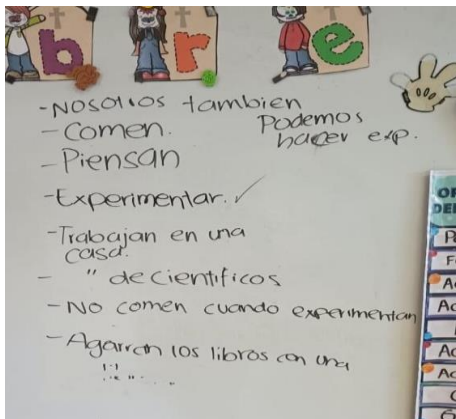 b r e
-Nosotros tambien
Podemos
hacer exp.
-Comen.
-Piensan
-Experimentar. ✓
-Trabajan en una
casa.
- " de cientificos
-No comen cuando experimentan
-Agarran los libros con una